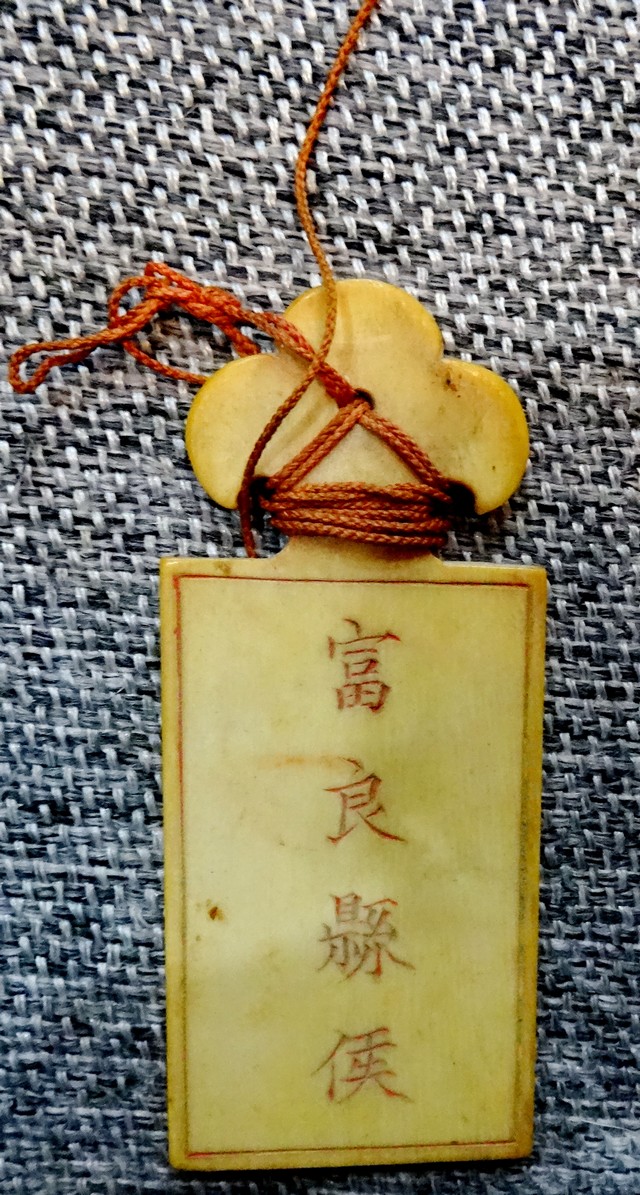 富良縣侯